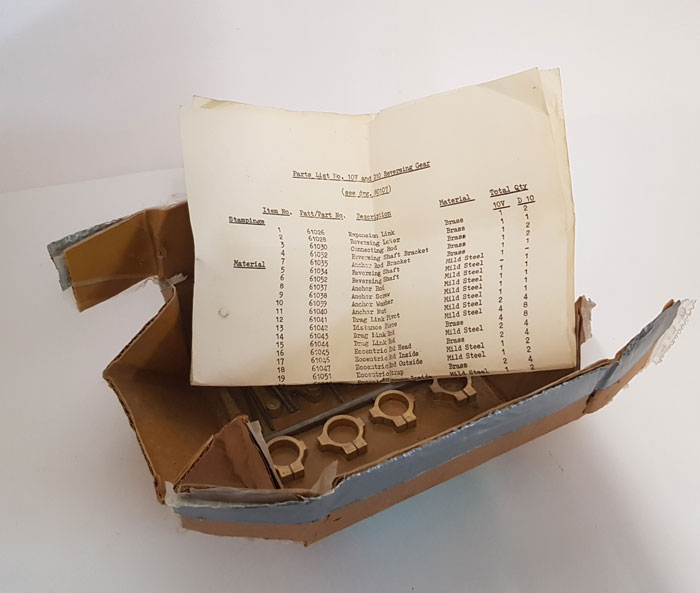 Parts List No. 10V and D10 Reversing Gear
(see drg.
Total Qty
Item No. Patt/Part No. Description Material 10V D 10
Stampings
1 61026 Expansion Link Brass 1 2
2 61028 Reversing Lever Brass 1 1
3 61030 Connecting Rod Brass 1 2
4 61032 Reversing Shaft Bracket Brass 1 1
Material
7 61035 Anchor Rod Bracket Mild Steel 1 -
5 61034 Reversing Shaft Mild Steel - 1
6 61052 Reversing Shaft Mild Steel 1 1
8 61037 Anchor Rod Mild Steel 1 1
9 61038 Anchor Screw Mild Steel 1 1
10 61039 Anchor Washer Mild Steel 1 1
11 61040 Anchor Nut Mild Steel 2 4
12 61041 Drag Link Pivot Mild Steel 4 8
13 61042 Distance Piece Brass 4 8
14 61043 Drag Link Rd Mild Steel 2 4
15 61044 Drag Link Rd Brass 1 2
16 61045 Eccentric Rd Head Mild Steel 1 2
17 61046 Eccentric Rd Inside Mild Steel 1 2
18 61047 Eccentric Rd Outside Brass 2 4
19 61051 Eccentric Strap Mild Steel 1 2